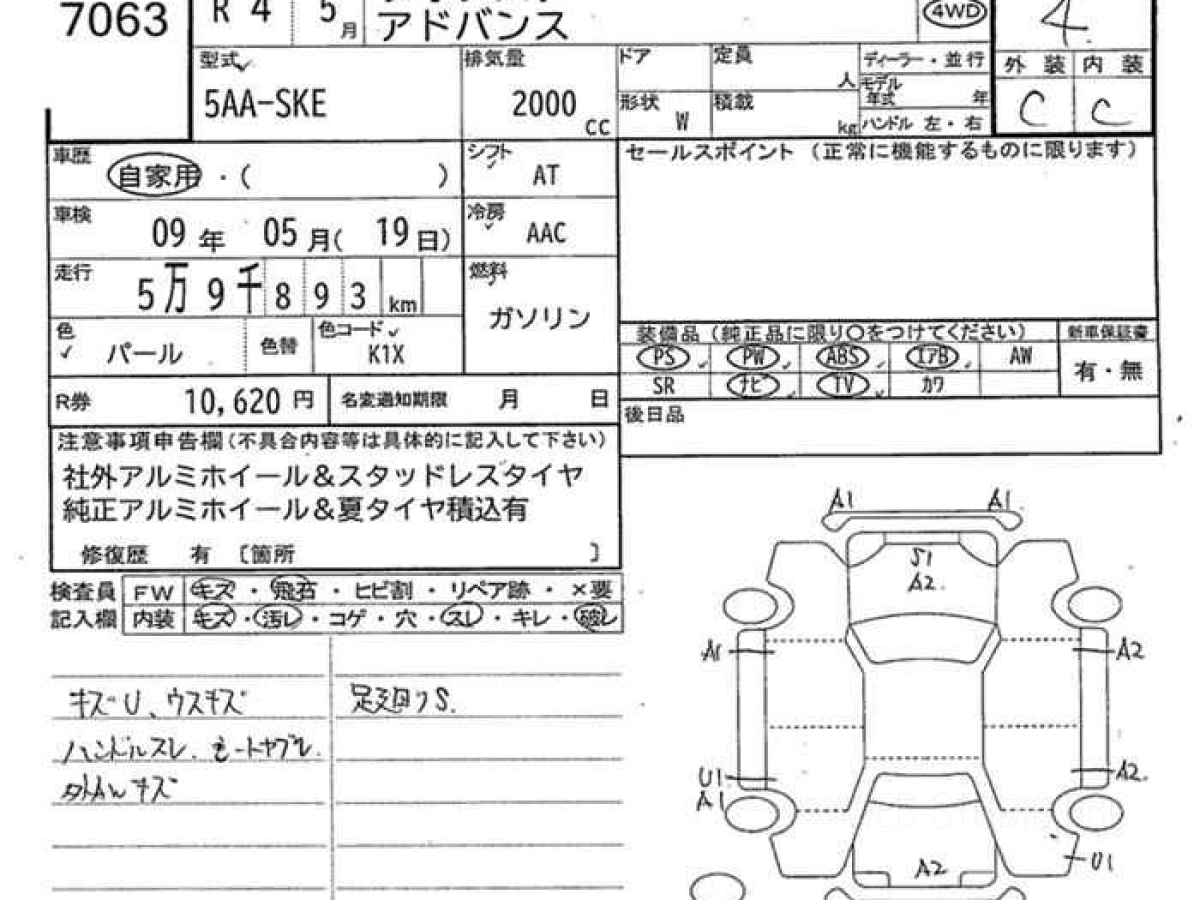 7063 R 4 5月
アドバンス
4WD
4
型式 5AA-SKE
排気量 2000 cc
ドア
定員 人
形状 W
積載 kg
ディーラー・並行
モデル年式 年
ハンドル 左・右
外装 内装
C C
車歴 自家用・( )
シフト AT
セールスポイント (正常に機能するものに限ります)
車検 09年 05月( 19日)
冷房 AAC
走行 5万9千893km
燃料 ガソリン
色 パール 色替 色コード K1X
装備品(純正品に限り○をつけてください) 新車保証書
PS PW ABS エアB AW
SR ナビ TV カワ
有・無
R券 10,620円 名変通知期限 月 日
後日品
注意事項申告欄(不具合内容等は具体的に記入して下さい)
社外アルミホイール&スタッドレスタイヤ
純正アルミホイール&夏タイヤ積込有
修復歴 有 〔箇所 〕
検査員記入欄
FW キズ・飛石・ヒビ割・リペア跡・×要
内装 キズ・汚レ・コゲ・穴・スレ・キレ・破レ
キズU、ウスキズ
足廻りS.
ハンドルスレ.シートヤブレ.
外AWキズ
A1 A1
S1
A2.
A1 A2
U1 A2.
A1
A2 U1